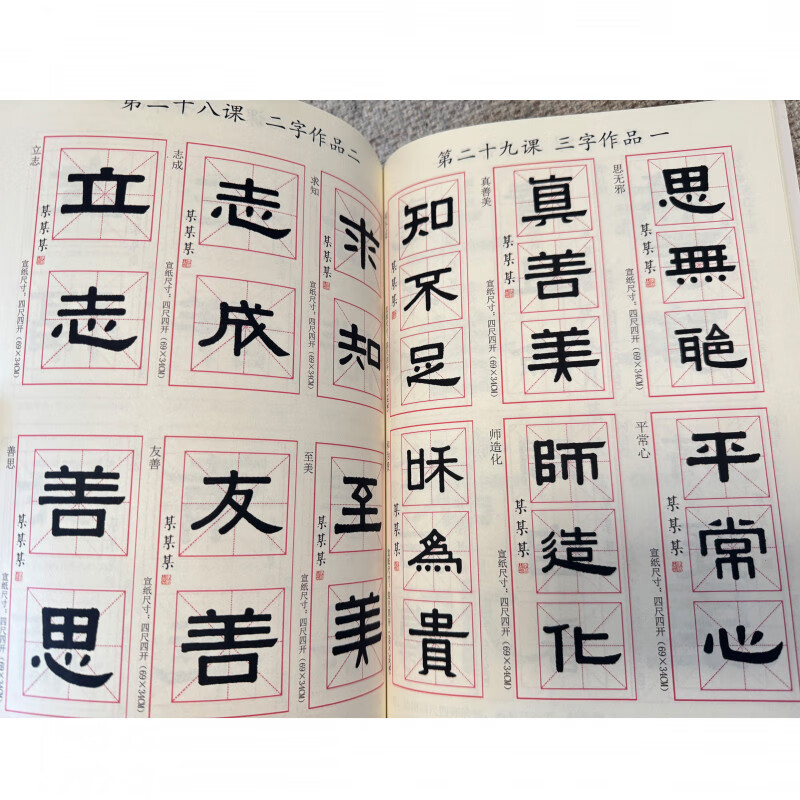 第二十八课 二字作品二
立志
立志
某某某
宣纸尺寸：四尺四开（69×34CM）
志成
志成
某某某
宣纸尺寸：四尺四开（69×34CM）
求知
求知
某某某
宣纸尺寸：四尺四开（69×34CM）
善思
善思
某某某
宣纸尺寸：四尺四开（69×34CM）
友善
友善
某某某
宣纸尺寸：四尺四开（69×34CM）
至美
至美
某某某
宣纸尺寸：四尺四开（69×34CM）
第二十九课 三字作品一
思无邪
思無邪
某某某
宣纸尺寸：四尺四开（69×34CM）
真善美
真善美
某某某
宣纸尺寸：四尺四开（69×34CM）
知不足
某某某
平常心
平常心
某某某
宣纸尺寸：四尺四开（69×34CM）
师造化
師造化
某某某
宣纸尺寸：四尺四开（69×34CM）
和為貴
某某某